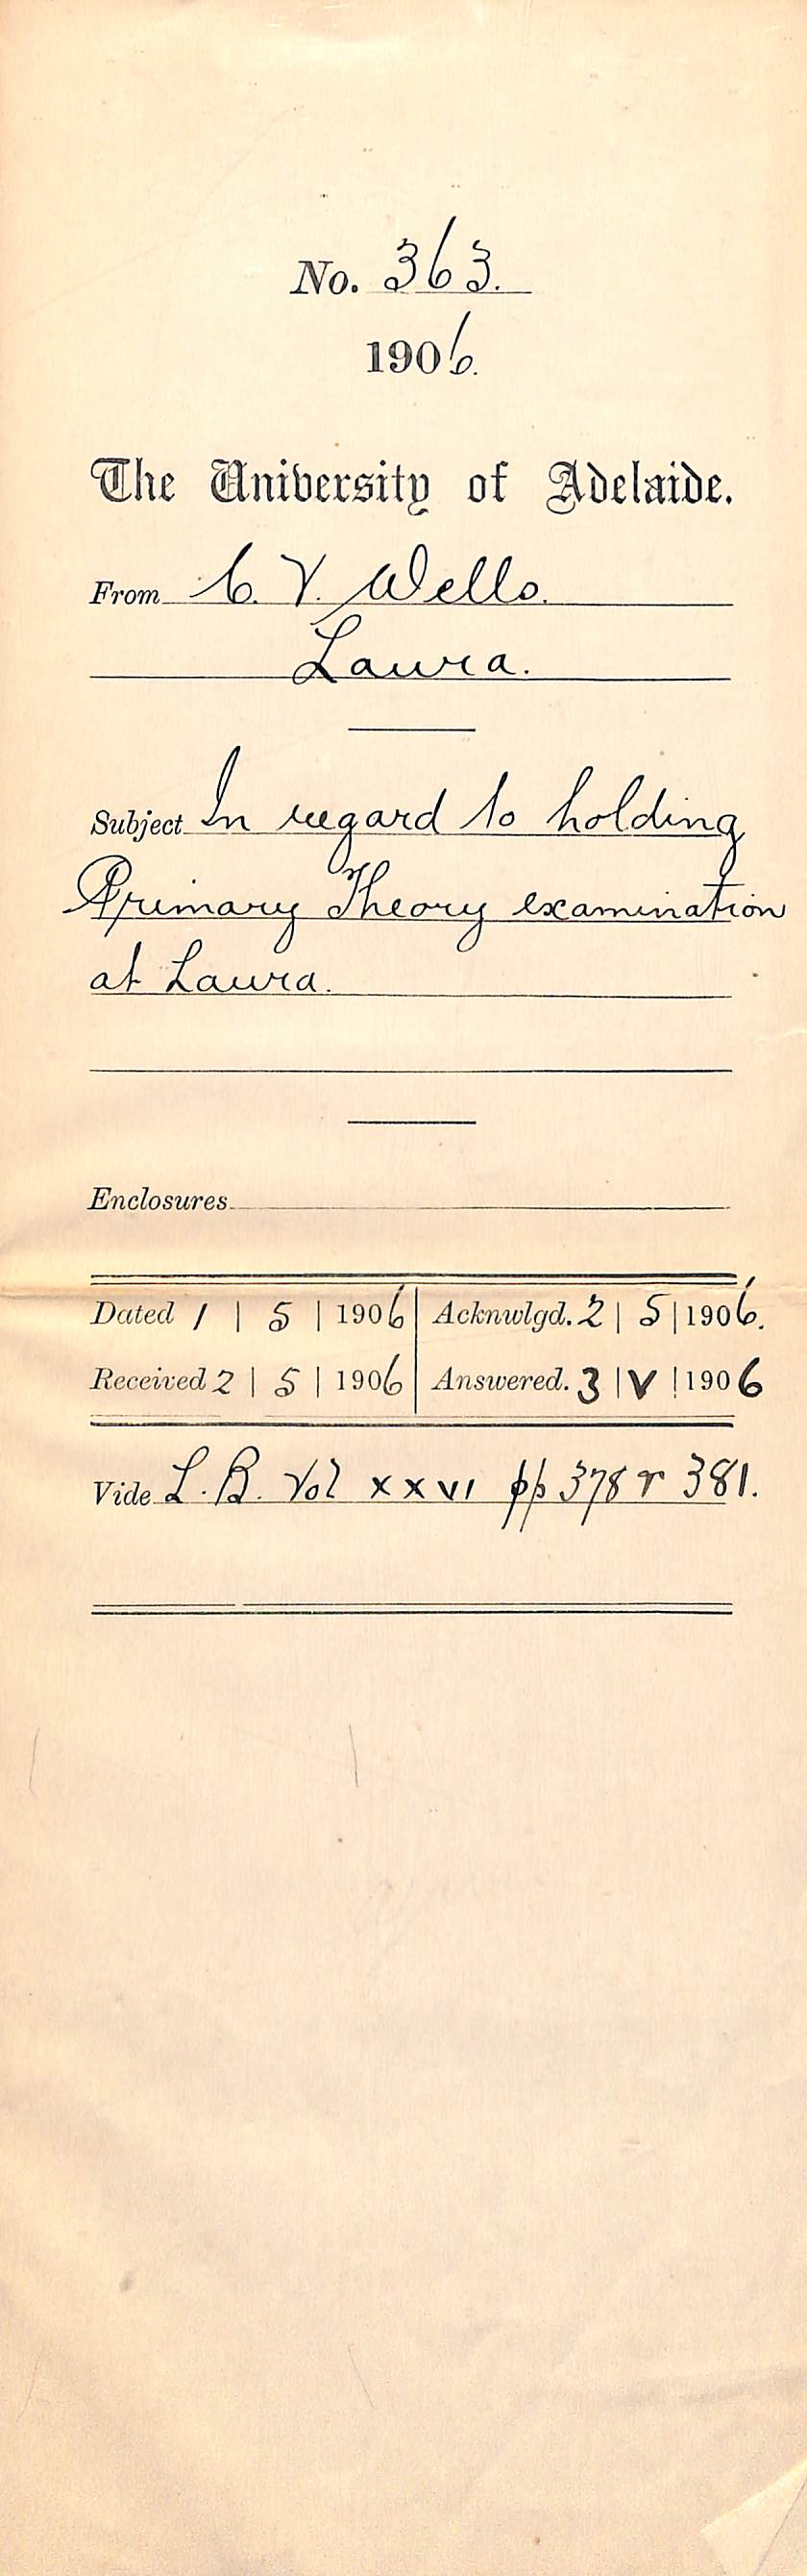 No. 363.
1906.
The University of Adelaide.
From C. V. Wells.
Laura.
Subject In regard to holding
Primary Theory examination
at Laura.
Enclosures
Dated 1 | 5 | 1906 | Acknwlgd. 2 | 5 | 1906.
Received 2 | 5 | 1906 | Answered. 3 | V | 1906
Vide L. B. Vol xxvi pp 378 & 381.